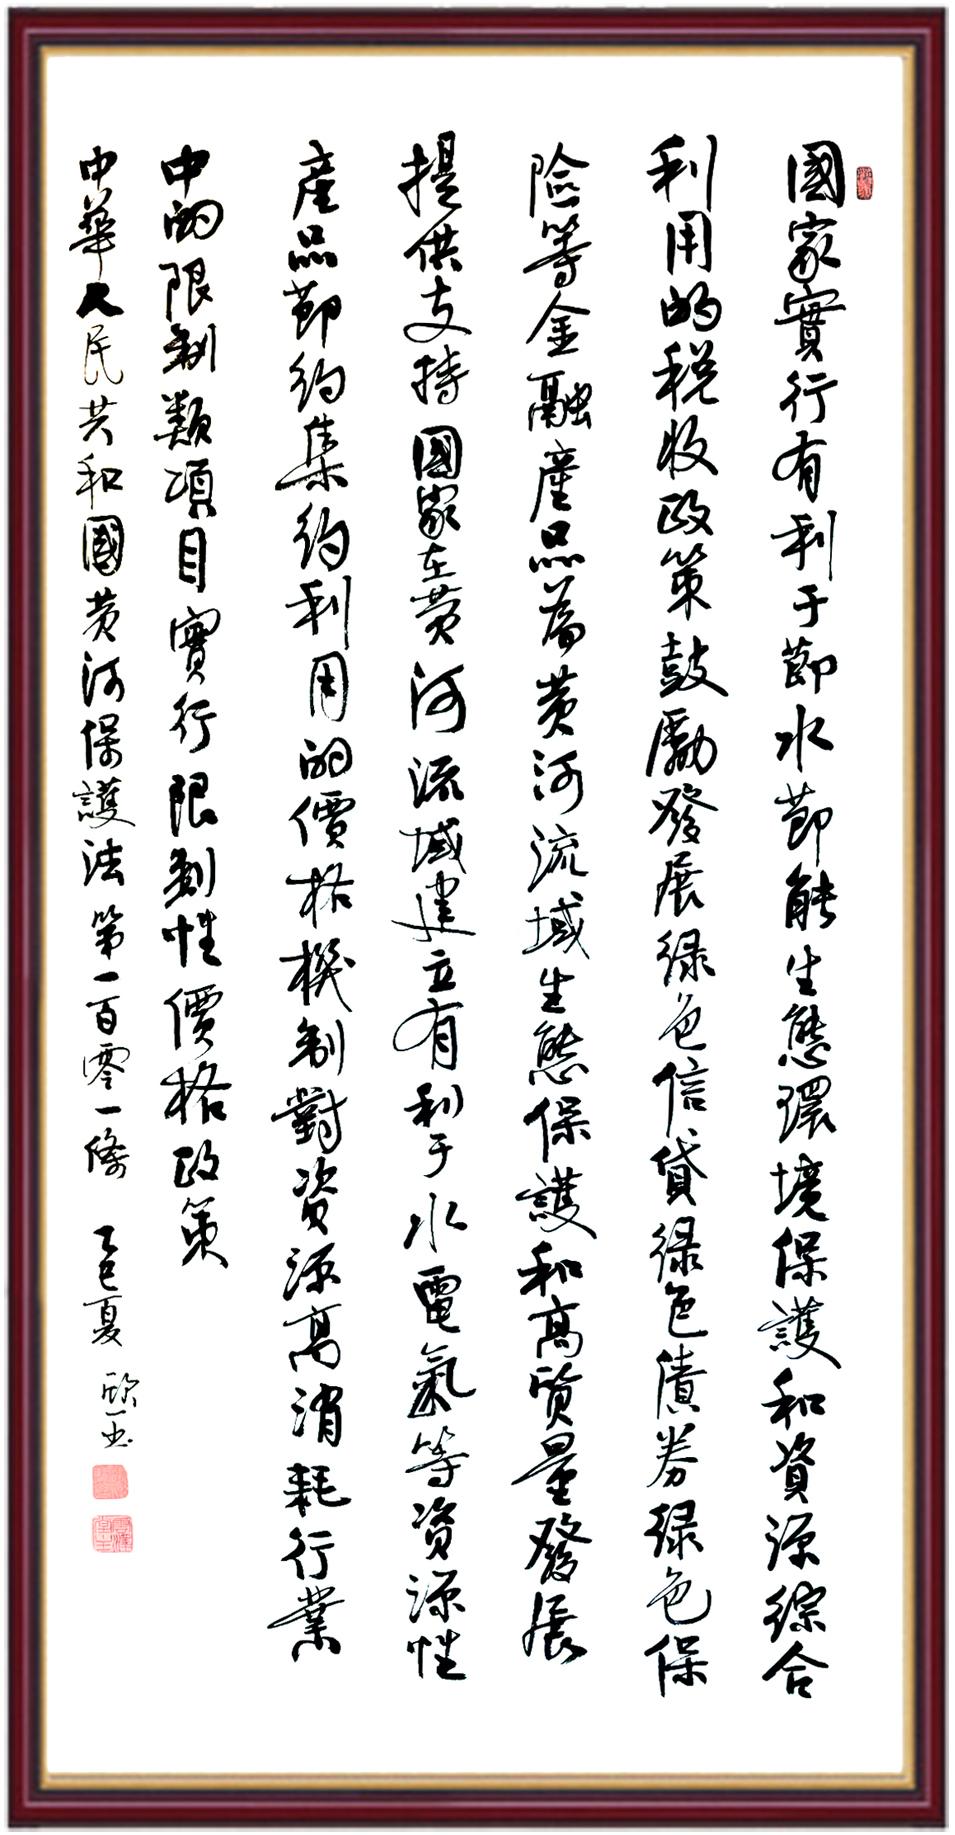 國家實行有利于節水節能生態環境保護和資源綜合
利用的税收政策鼓勵發展緑色信貸緑色債券緑色保
险等金融産品為黄河流域生態保護和高质量發展
提供支持國家在黄河流域建立有利于水電氣等資源性
産品節約集約利用的價格機制對資源高消耗行業
中的限制類項目實行限制性價格政策
中華人民共和國黄河保護法第一百零一條 乙巳夏